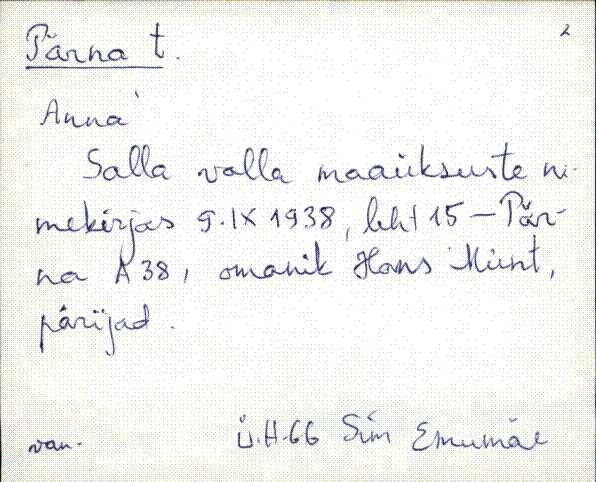 2
Pärna t.
Anna
Salla valla maaüksuste ni-
mekirjas 9.IX 1938, leht 15 – Pär-
na A 38, omanik Hans Münt,
pärijad.
van. Ü.H-66 Siin Emumäe